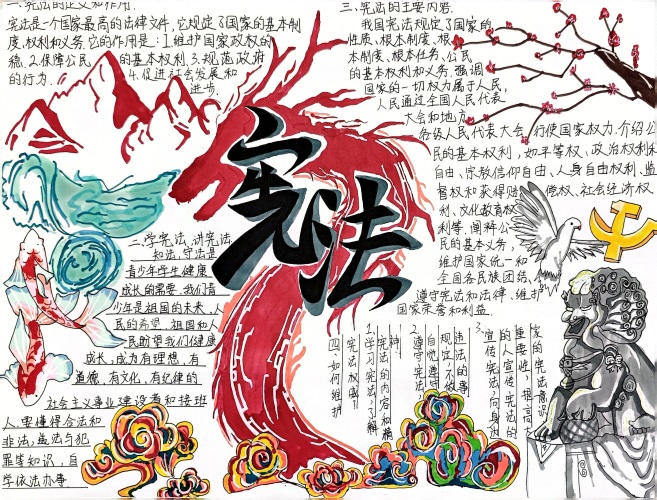 一.宪法的定义和作用.
宪法是一个国家最高的法律文件,它规定了国家的基本制
度、权利和义务.它的作用是:1.维护国家政权的
稳.2.保障公民的基本权利 3.规范政府
的行为. 4.促进社会发展和
进步.
宪法
二.学宪法、讲宪法
和法,守法是
青少年学生健康
成长的需要,我们青
少年是祖国的未来,人
民的希望,祖国和人
民盼望我们健康
成长,成为有理想,有
道德,有文化,有纪律的
社会主义事业建设者和接班
人,要懂得合法和
非法,益法与犯
罪等知识,自
学依法办事
三.宪法的主要内容.
我国宪法规定了国家的
性质、根本制度、根
本制度、根本任务、公民
的基本权利和义务.强调
国家的一切权力属于人民,
人民通过全国人民代表
大会和地方
各级人民代表大会 行使国家权力.介绍公
民的基本权利,如平等权、政治权利和
自由、宗教信仰自由、人身自由权利、监
督权和获得赔偿权、社会经济权
利、文化教育权
利等,阐释公
民的基本义务,
维护国家统一和
全国各民族团结、
遵守宪法和法律、维护
国家荣誉和利益.
四、如何维护
宪法权威!!
1.学习宪法,了解
宪法的内容和精
神.
2.遵守宪法,
自觉遵守
规定,不做
违法的事
3.宣传宪法,向身边
的人宣传宪法的
重要性,提高大
家的宪法意识